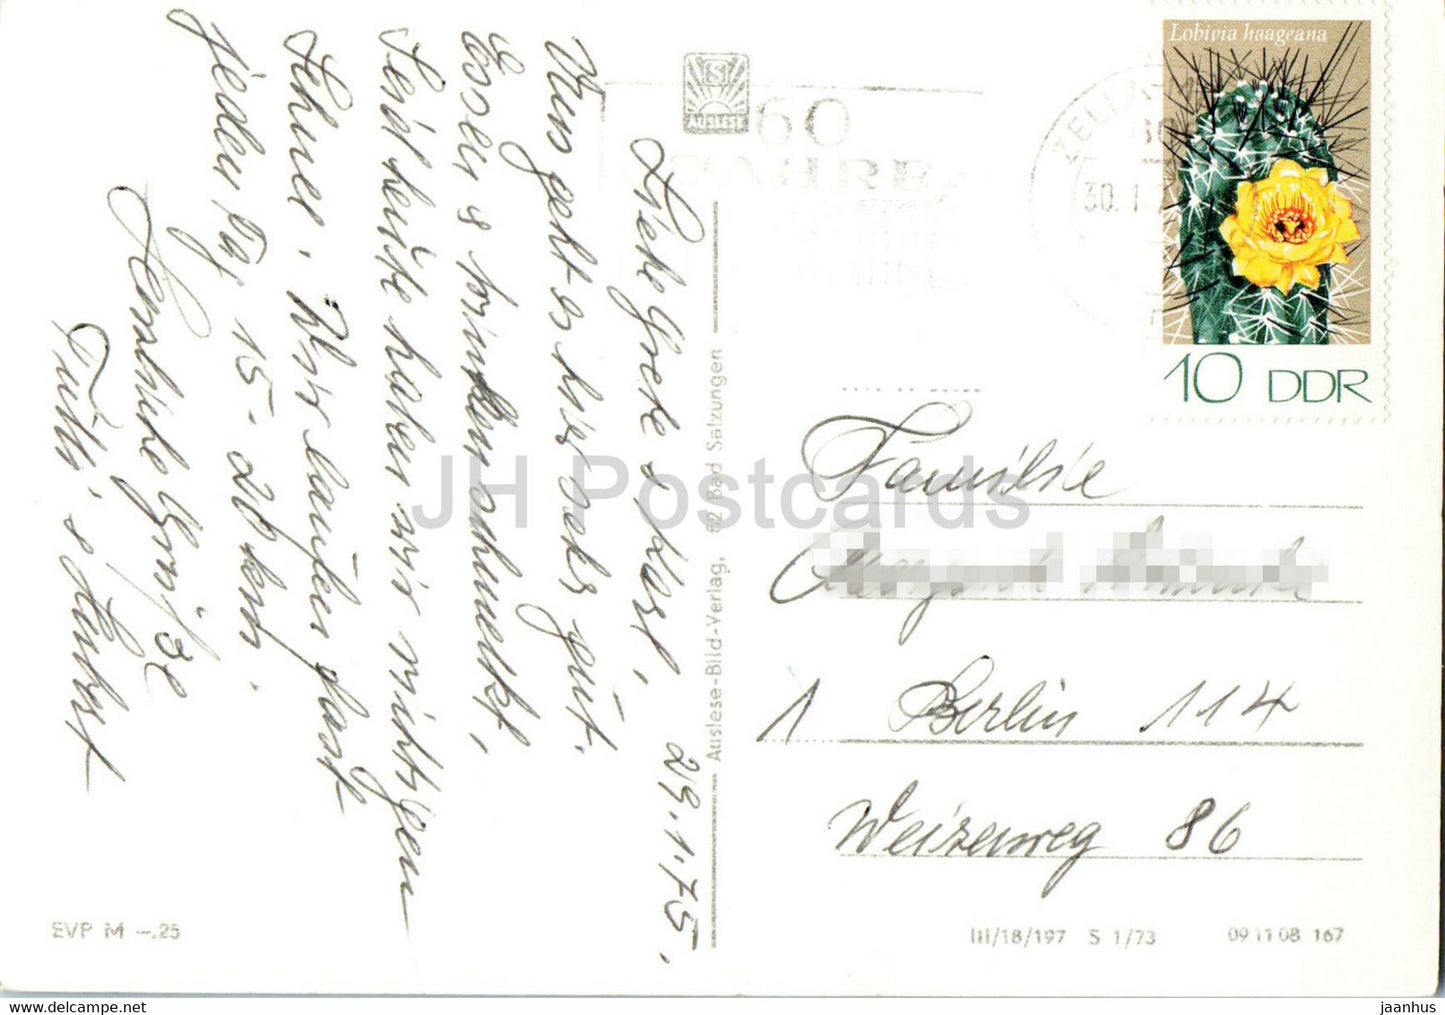 Liebe Grete & Horst, 29.1.75.
Uns geht es hier sehr gut.
Essen & trinken schmeckt,
Seit heute haben wir richtigen
Schnee. Wir laufen fast
jeden Tag 15-20 km.
Herzliche Grüße
& Horst
S
AUSLESE
60
JAHRE
30.1.7
Lobivia haageana
10 DDR
Auslese-Bild-Verlag, 62 Bad Salzungen
Familie
1 Berlin 114
Weizenweg 86
EVP M -.25
III/18/197 S 1/73 09 11 08 167
JH Postcards
HIPPOSTCARD.COM jaanhus